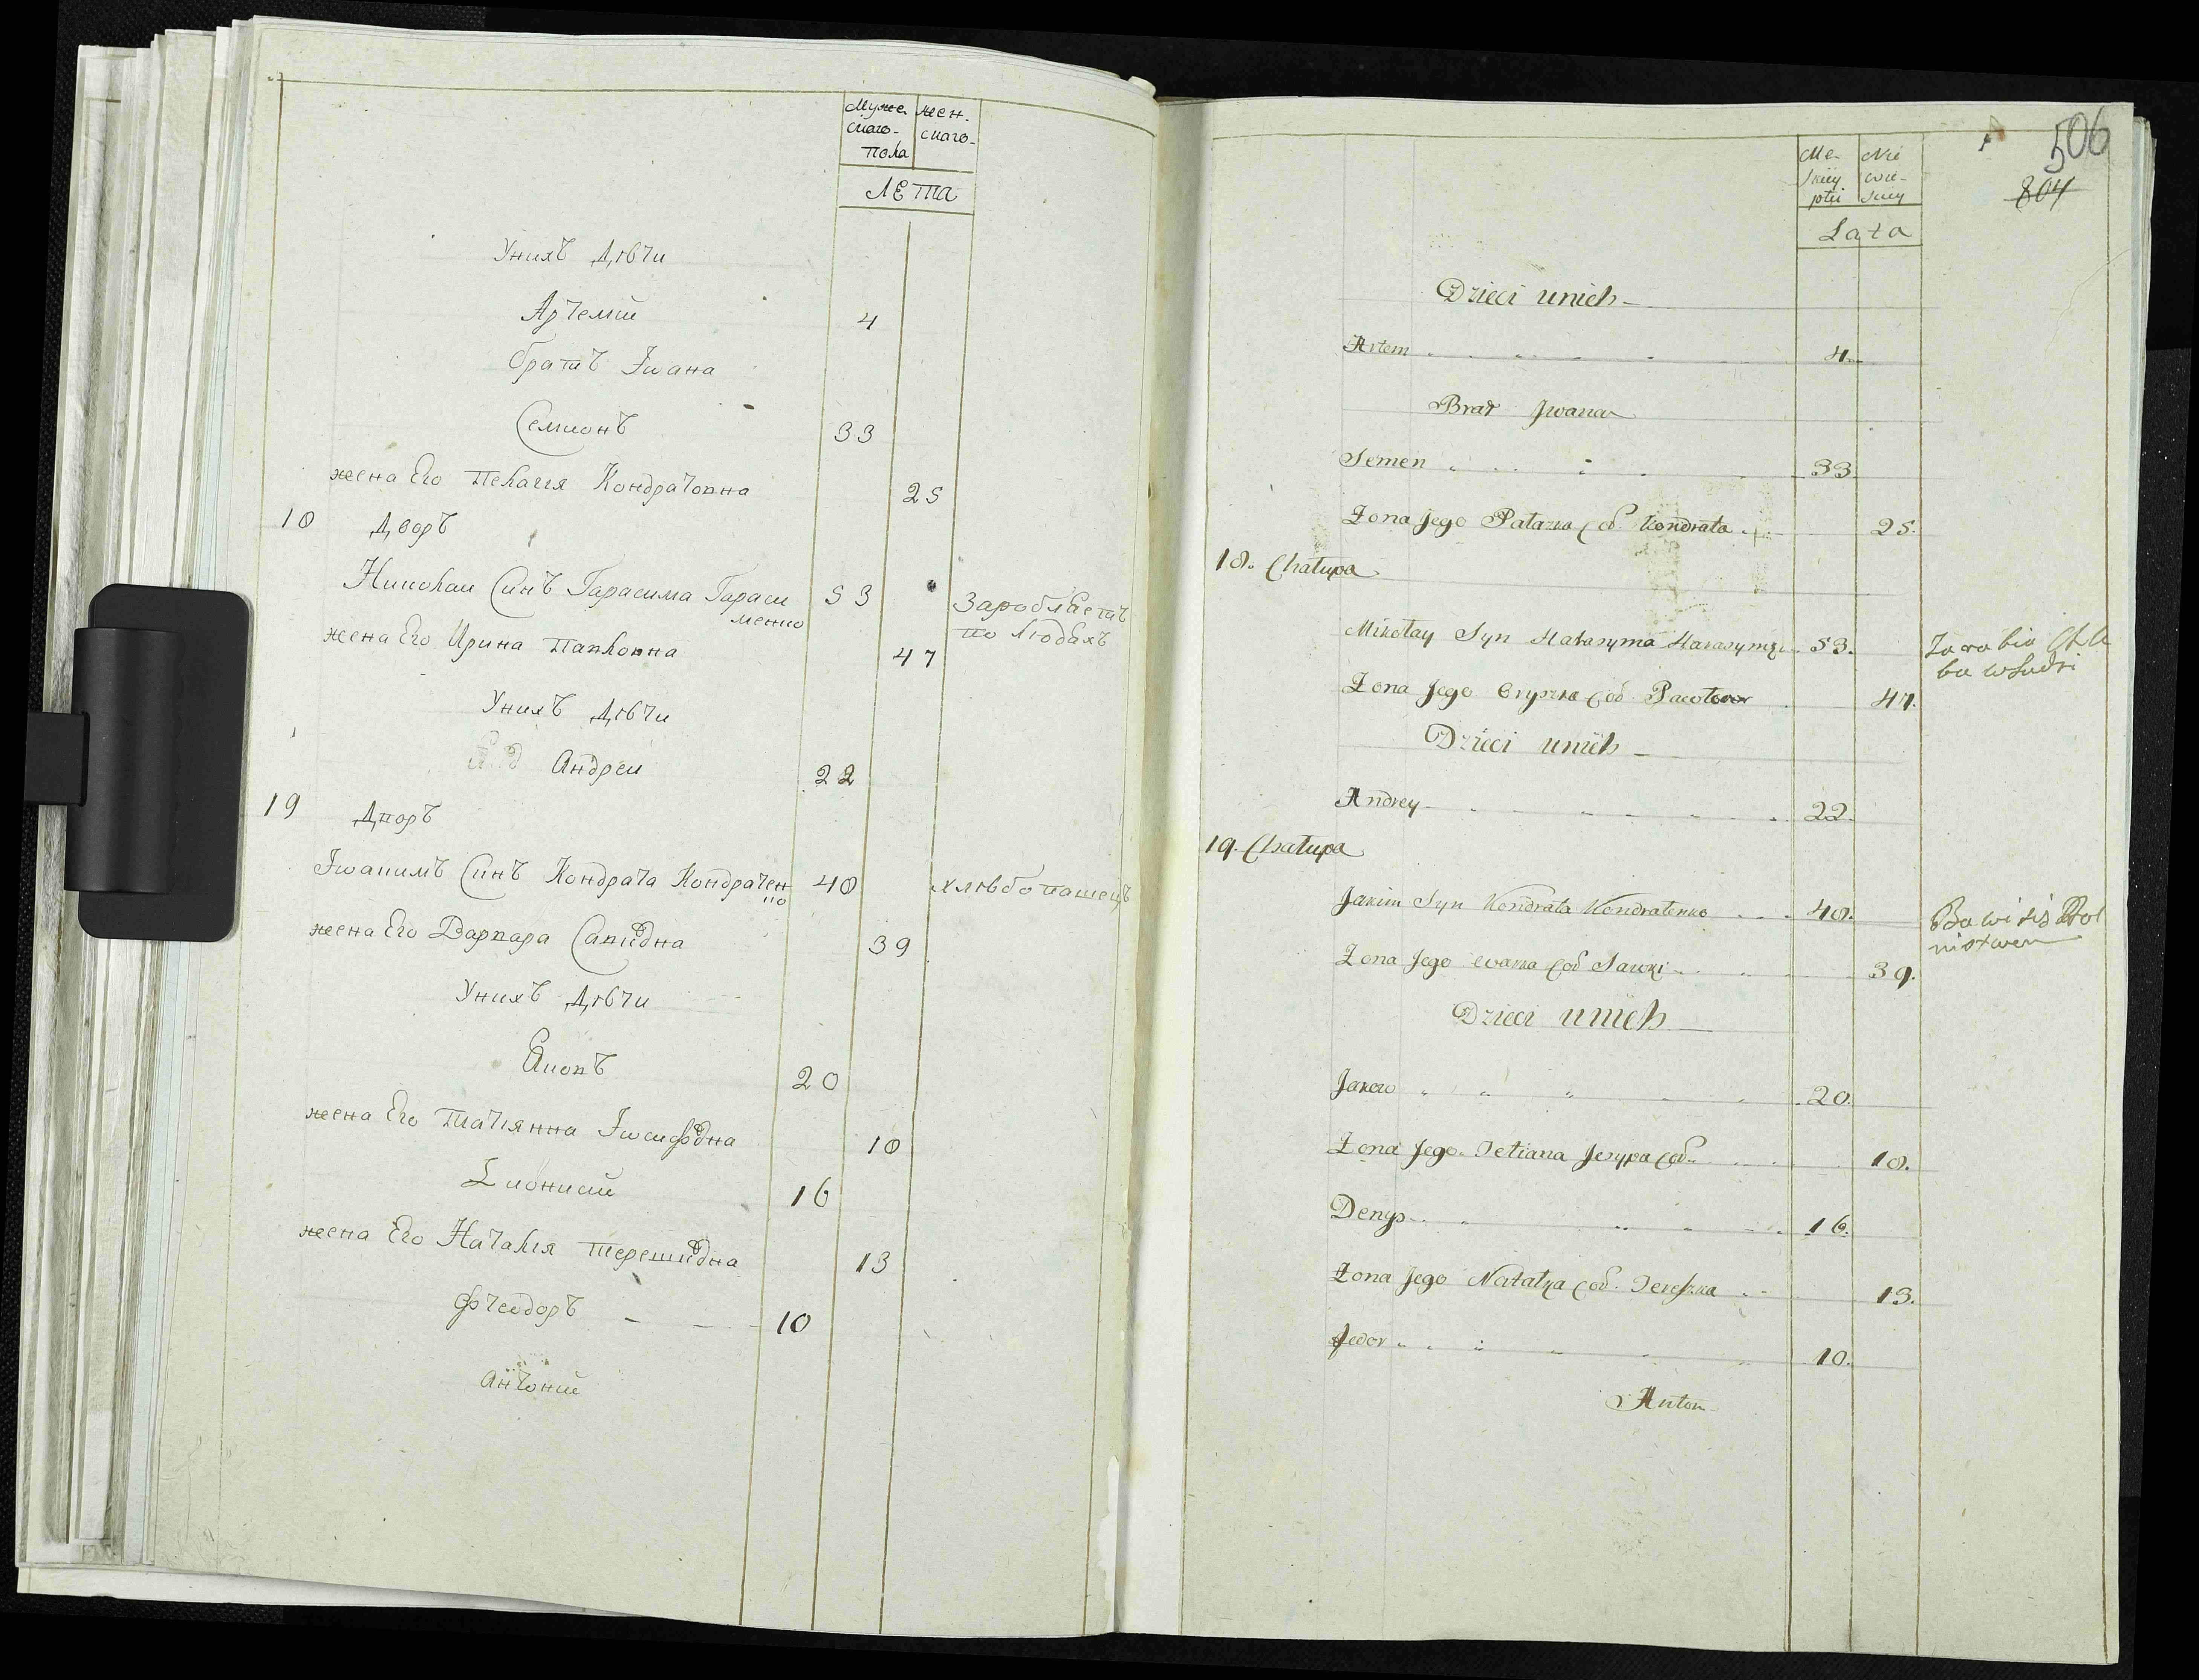 Муже
скаго
пола
жен
скаго
ЛЕта
Унихъ Дѣти
Артемій 4
братъ Іwана
Семионъ 33
жена Его Пелагія Кондратовна 25
18 Дворъ
Николаи Синъ Гарасима Гараси
менко 53 Зароблаетъ
по людѣхъ
жена Его Ирина Павловна 47
Унихъ Дѣти
Андреи 22
19 Дворъ
Іwакимъ Синъ Кондрата Кондратен
ко 40 хлѣбопашецъ
жена Его Варвара Савидна 39
Унихъ Дѣти
Яковъ 20
жена Его Татіянна Іwсифодна 18
Діонисій 16
жена Его Наталія Терешидна 13
Фтеодоръ 10
Антоній
506
804
Me
skiey
płci
Nie
wie-
skiey
Lata
Dzieci unich
Artem 4.
Brat Jwana
Semen 33.
Żona Jego Palazka Cór. Kondrata 25.
18. Chałupa
Mikołay Syn Harasyma Harasymę 53. Zarabia Chle
ba w Ludzi
Żona Jego Oryszka Cór. Pawłowa 47.
Dzieci unich
Andrey 22.
19. Chałupa
Jakim Syn Kondrata Kondratenko 40. Bawi sis Rol
nistwem
Żona Jego Cór Sawki 39.
Dzieci unich
Jakow 20.
Żona Jego Tetiana Jesypa Cór. 18.
Denys 16.
Żona Jego Natalka Cór. Tereszka 13.
Fedor 10.
Anton